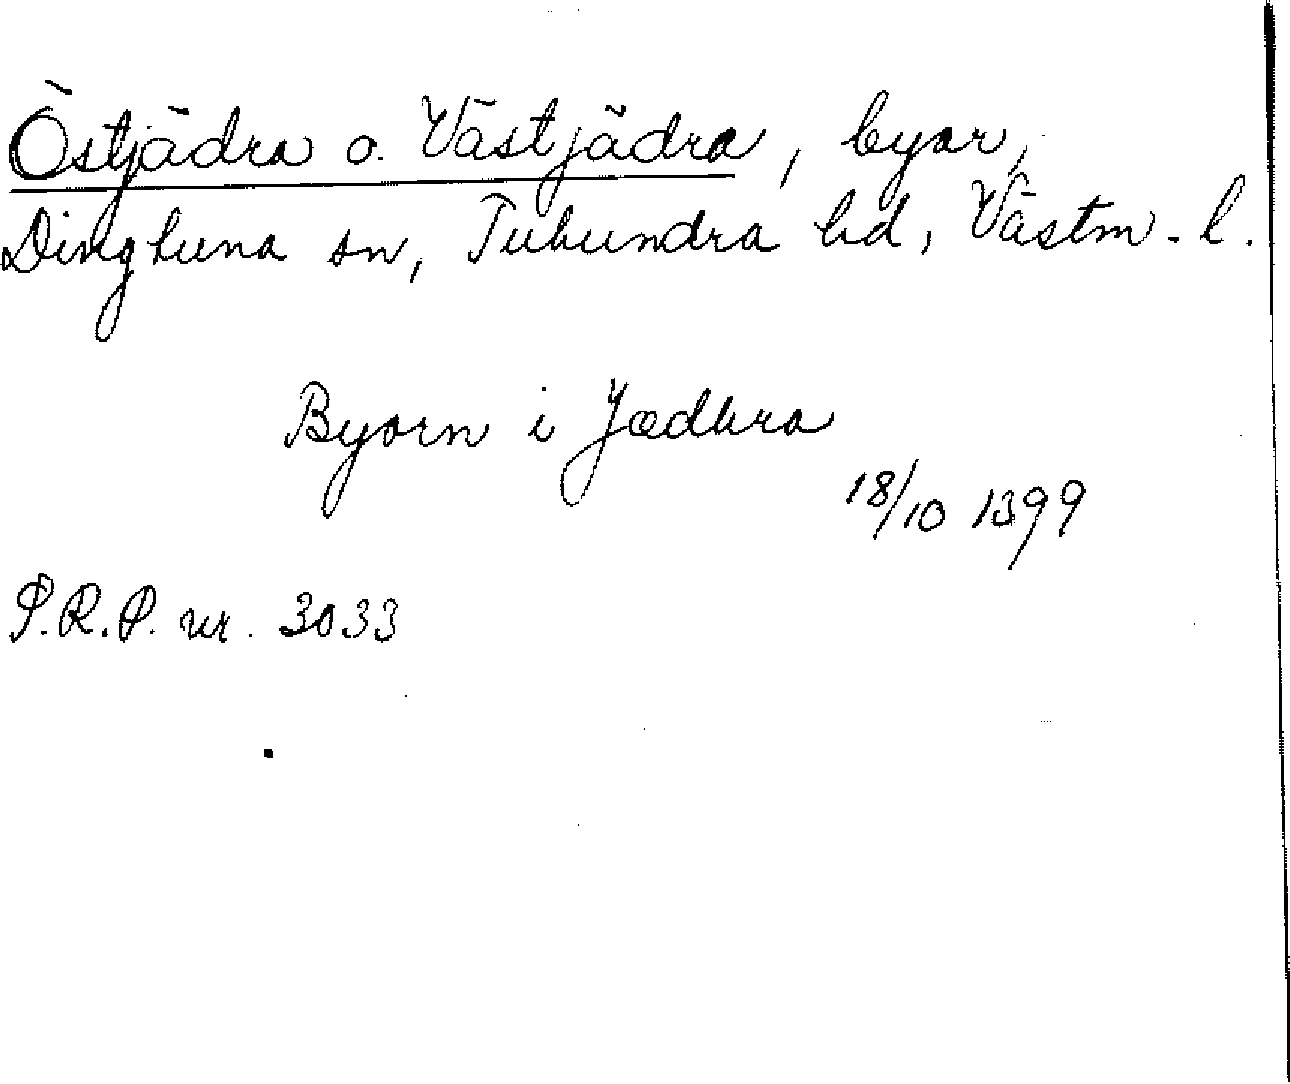 Östjädra o. Västjädra, byar,
Dingtuna sn, Tuhundra hd, Västm. l.
Byorn i Jædhra
18/10 1399
P.R.P. nr. 3033